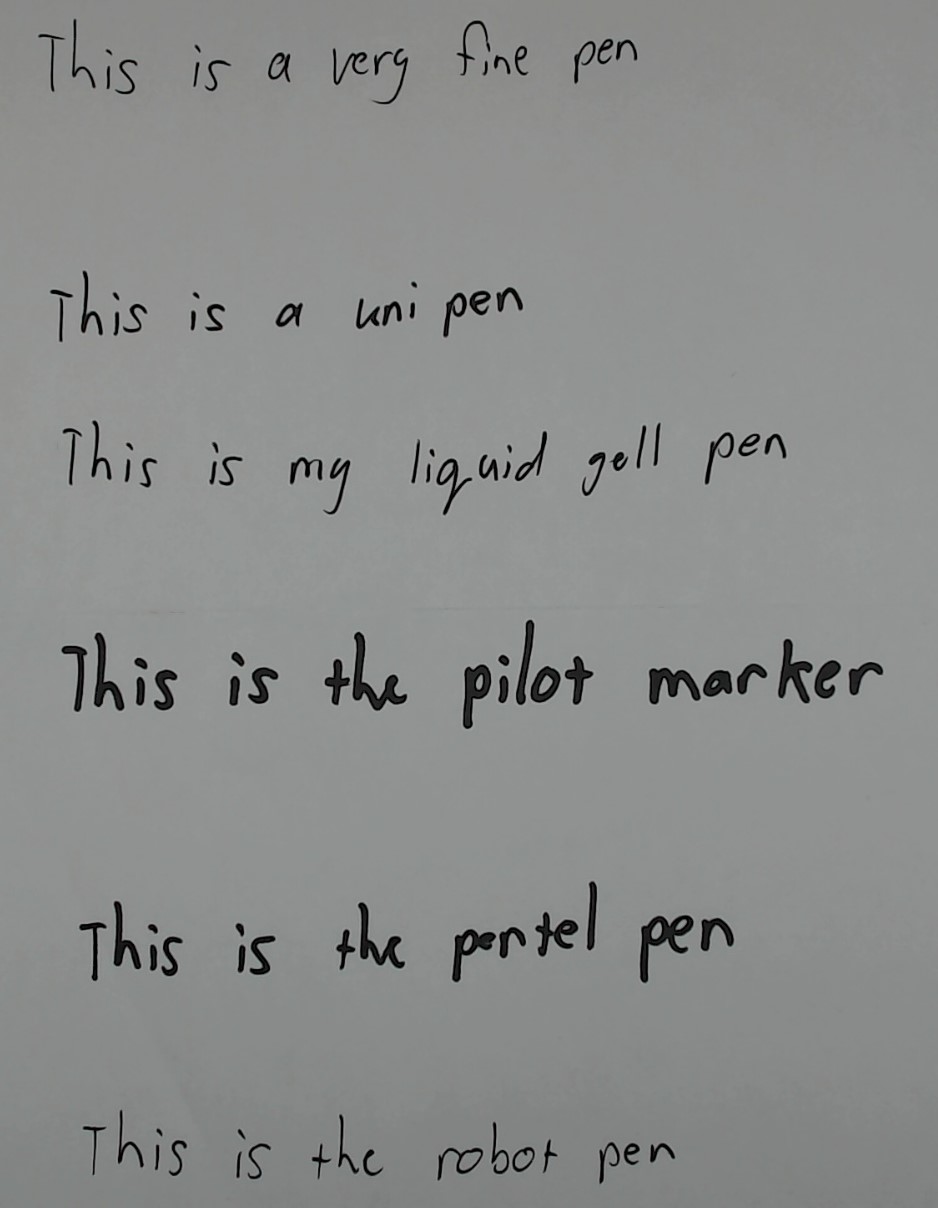 This is a very fine pen
This is a uni pen
This is my liquid gell pen
This is the pilot marker
This is the pentel pen
This is the robot pen